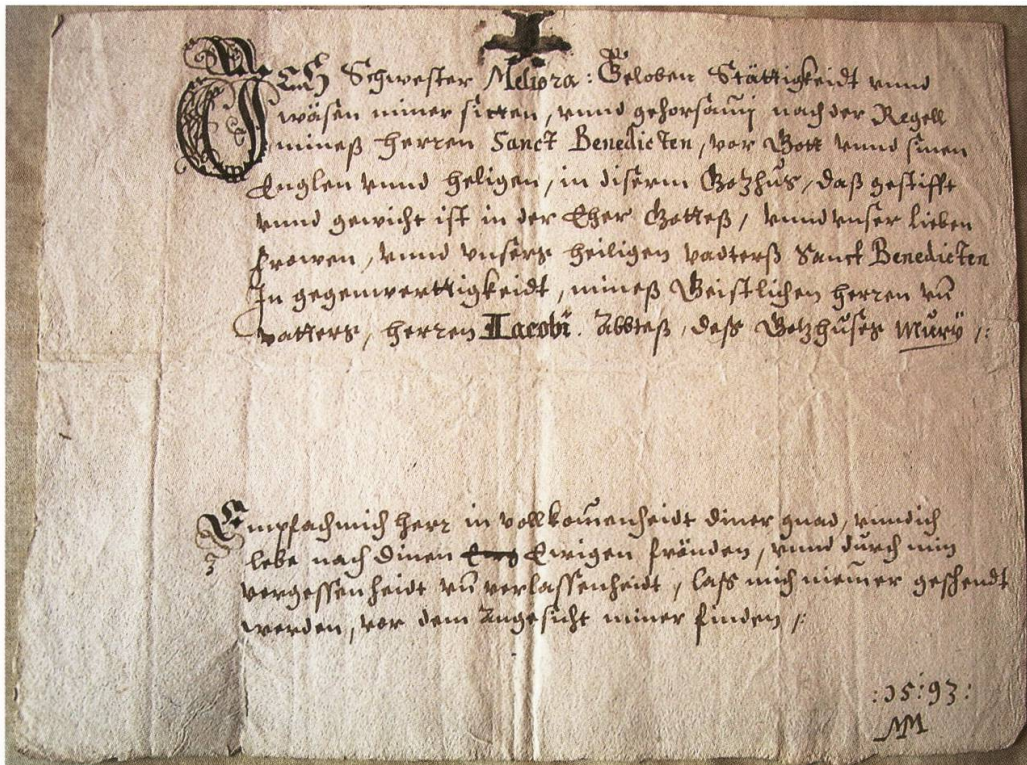 Ich Schwester Meliora: Geloben Stättigkeidt vnnd
wäsen miner sitten, vnnd gehorsam nach der Regell
mineß herren Sanct Benedicten, vor Gott vnnd sinen
Englen vnnd heligen, in diserm Gotzhus, daß gestifft
vnnd gewicht ist in der Eher Gotteß, vnnd vnser lieben
frowen, vnnd vnsers heiligen vadterß Sanct Benedicten
In gegenwerttigkeidt, mineß Geistlichen herren vn̄
vatters, herren Iacobi. Abbteß, dess Gotzhuses Mury /:
Empfach mich herr in vollkom̄enheidt diner gnad, vnnd ich
lebe nach dinen Ewigen fröuden, vnnd durch min
vergessenheidt vn̄ verlassenheidt, lass mich niem̄er geschendt
werden, vor dem Angesicht miner finden /:
:15:93:
MM